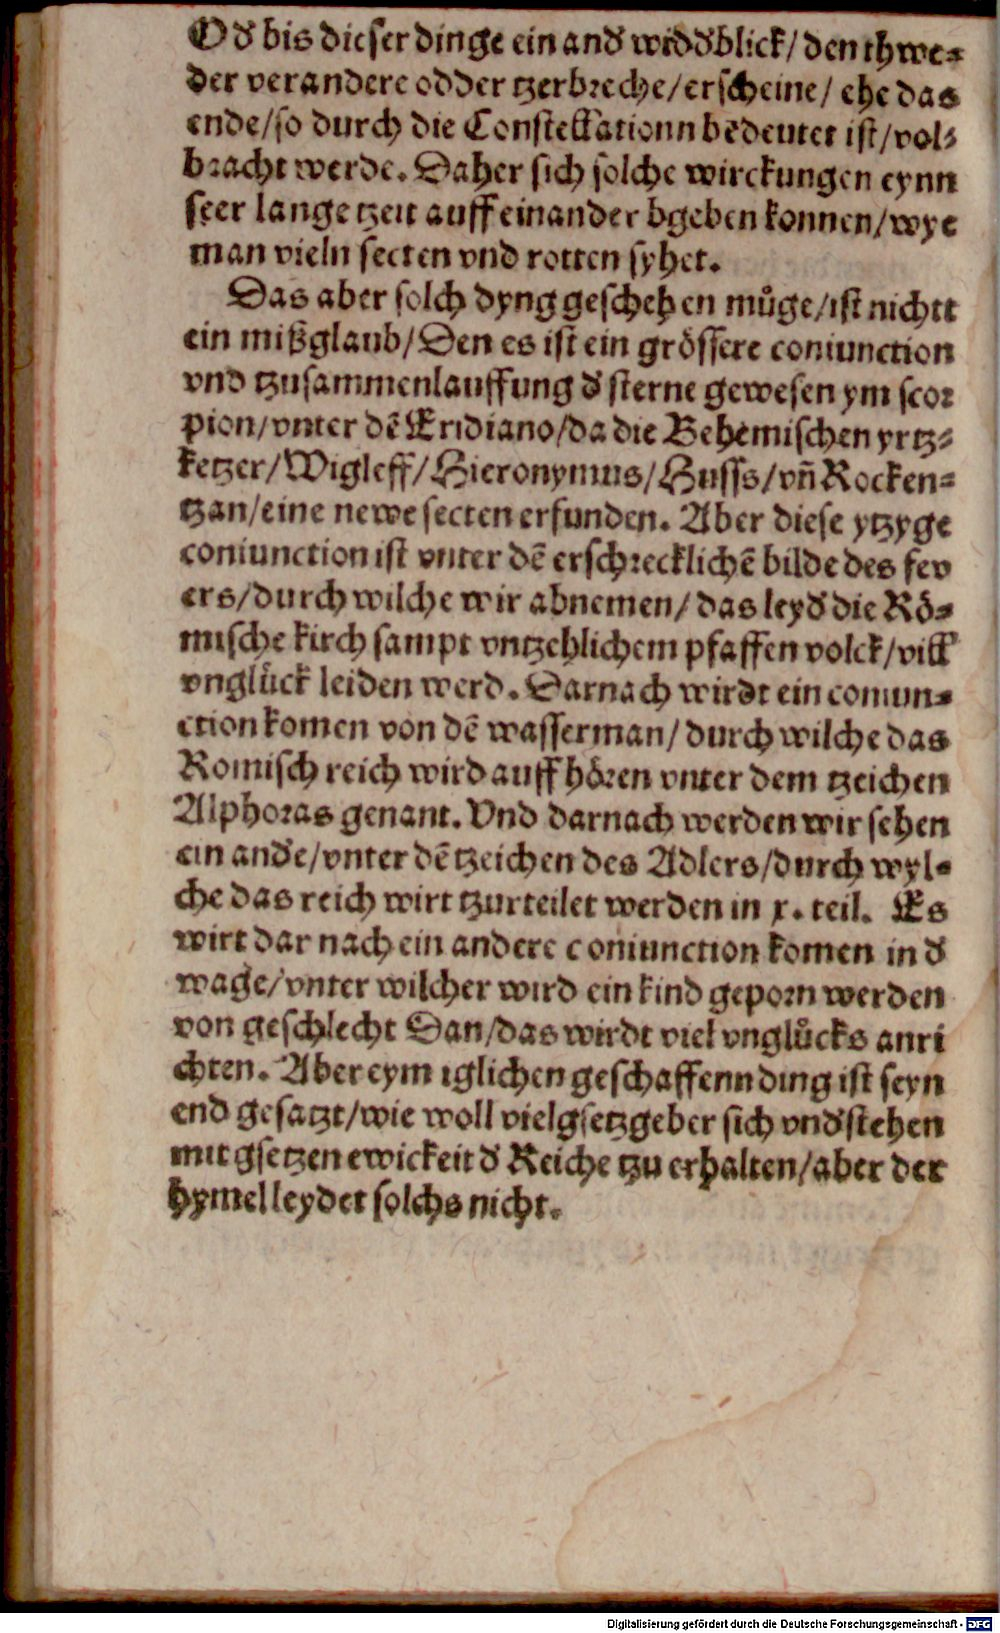 Od' bis dieser dinge ein and' widd'blick/den thwe⸗
der verandere odder tzerbreche/erscheine/ ehe das
ende/so durch die Constellationn bedeutet ist/vol⸗
bracht werde. Daher sich solche wirckungen eynn
seer lange tzeit auff einander bgeben konnen/wye
man vieln secten vnd rotten syhet.
Das aber solch dyng geschehen můge/ist nichtt
ein mißglaub/Den es ist ein grössere coniunction
vnd tzusammenlauffung d' sterne gewesen ym scor
pion/vnter dē Eridiano/da die Behemischen yrtz⸗
ketzer/Wigleff/Hieronymus/Husss/vn̄ Rocken⸗
tzan/eine newe secten erfunden. Aber diese ytzyge
coniunction ist vnter dē erschrecklichē bilde des fev
ers/durch wilche wir abnemen/das leyd' die Rö⸗
mische kirch sampt vntzehlichem pfaffen volck/vill
vnglück leiden werd. Darnach wirdt ein coniun⸗
ction komen von dē wasserman/durch wilche das
Romisch reich wird auff hören vnter dem tzeichen
Alphoras genant. Vnd darnach werden wir sehen
ein and'e/vnter dē tzeichen des Adlers/durch wyl⸗
che das reich wirt tzurteilet werden in x. teil. Es
wirt dar nach ein andere coniunction komen in d'
wage/vnter wilcher wird ein kind geporn werden
von geschlecht Dan/das wirdt viel vnglůcks anri
chten. Aber eym iglichen geschaffenn ding ist seyn
end gesatzt/wie woll viel gsetzgeber sich vnd'stehen
mit gsetzen ewickeit d' Reiche tzu erhalten/aber der
hymel leydet solchs nicht.
Digitalisierung gefördert durch die Deutsche Forschungsgemeinschaft - DFG